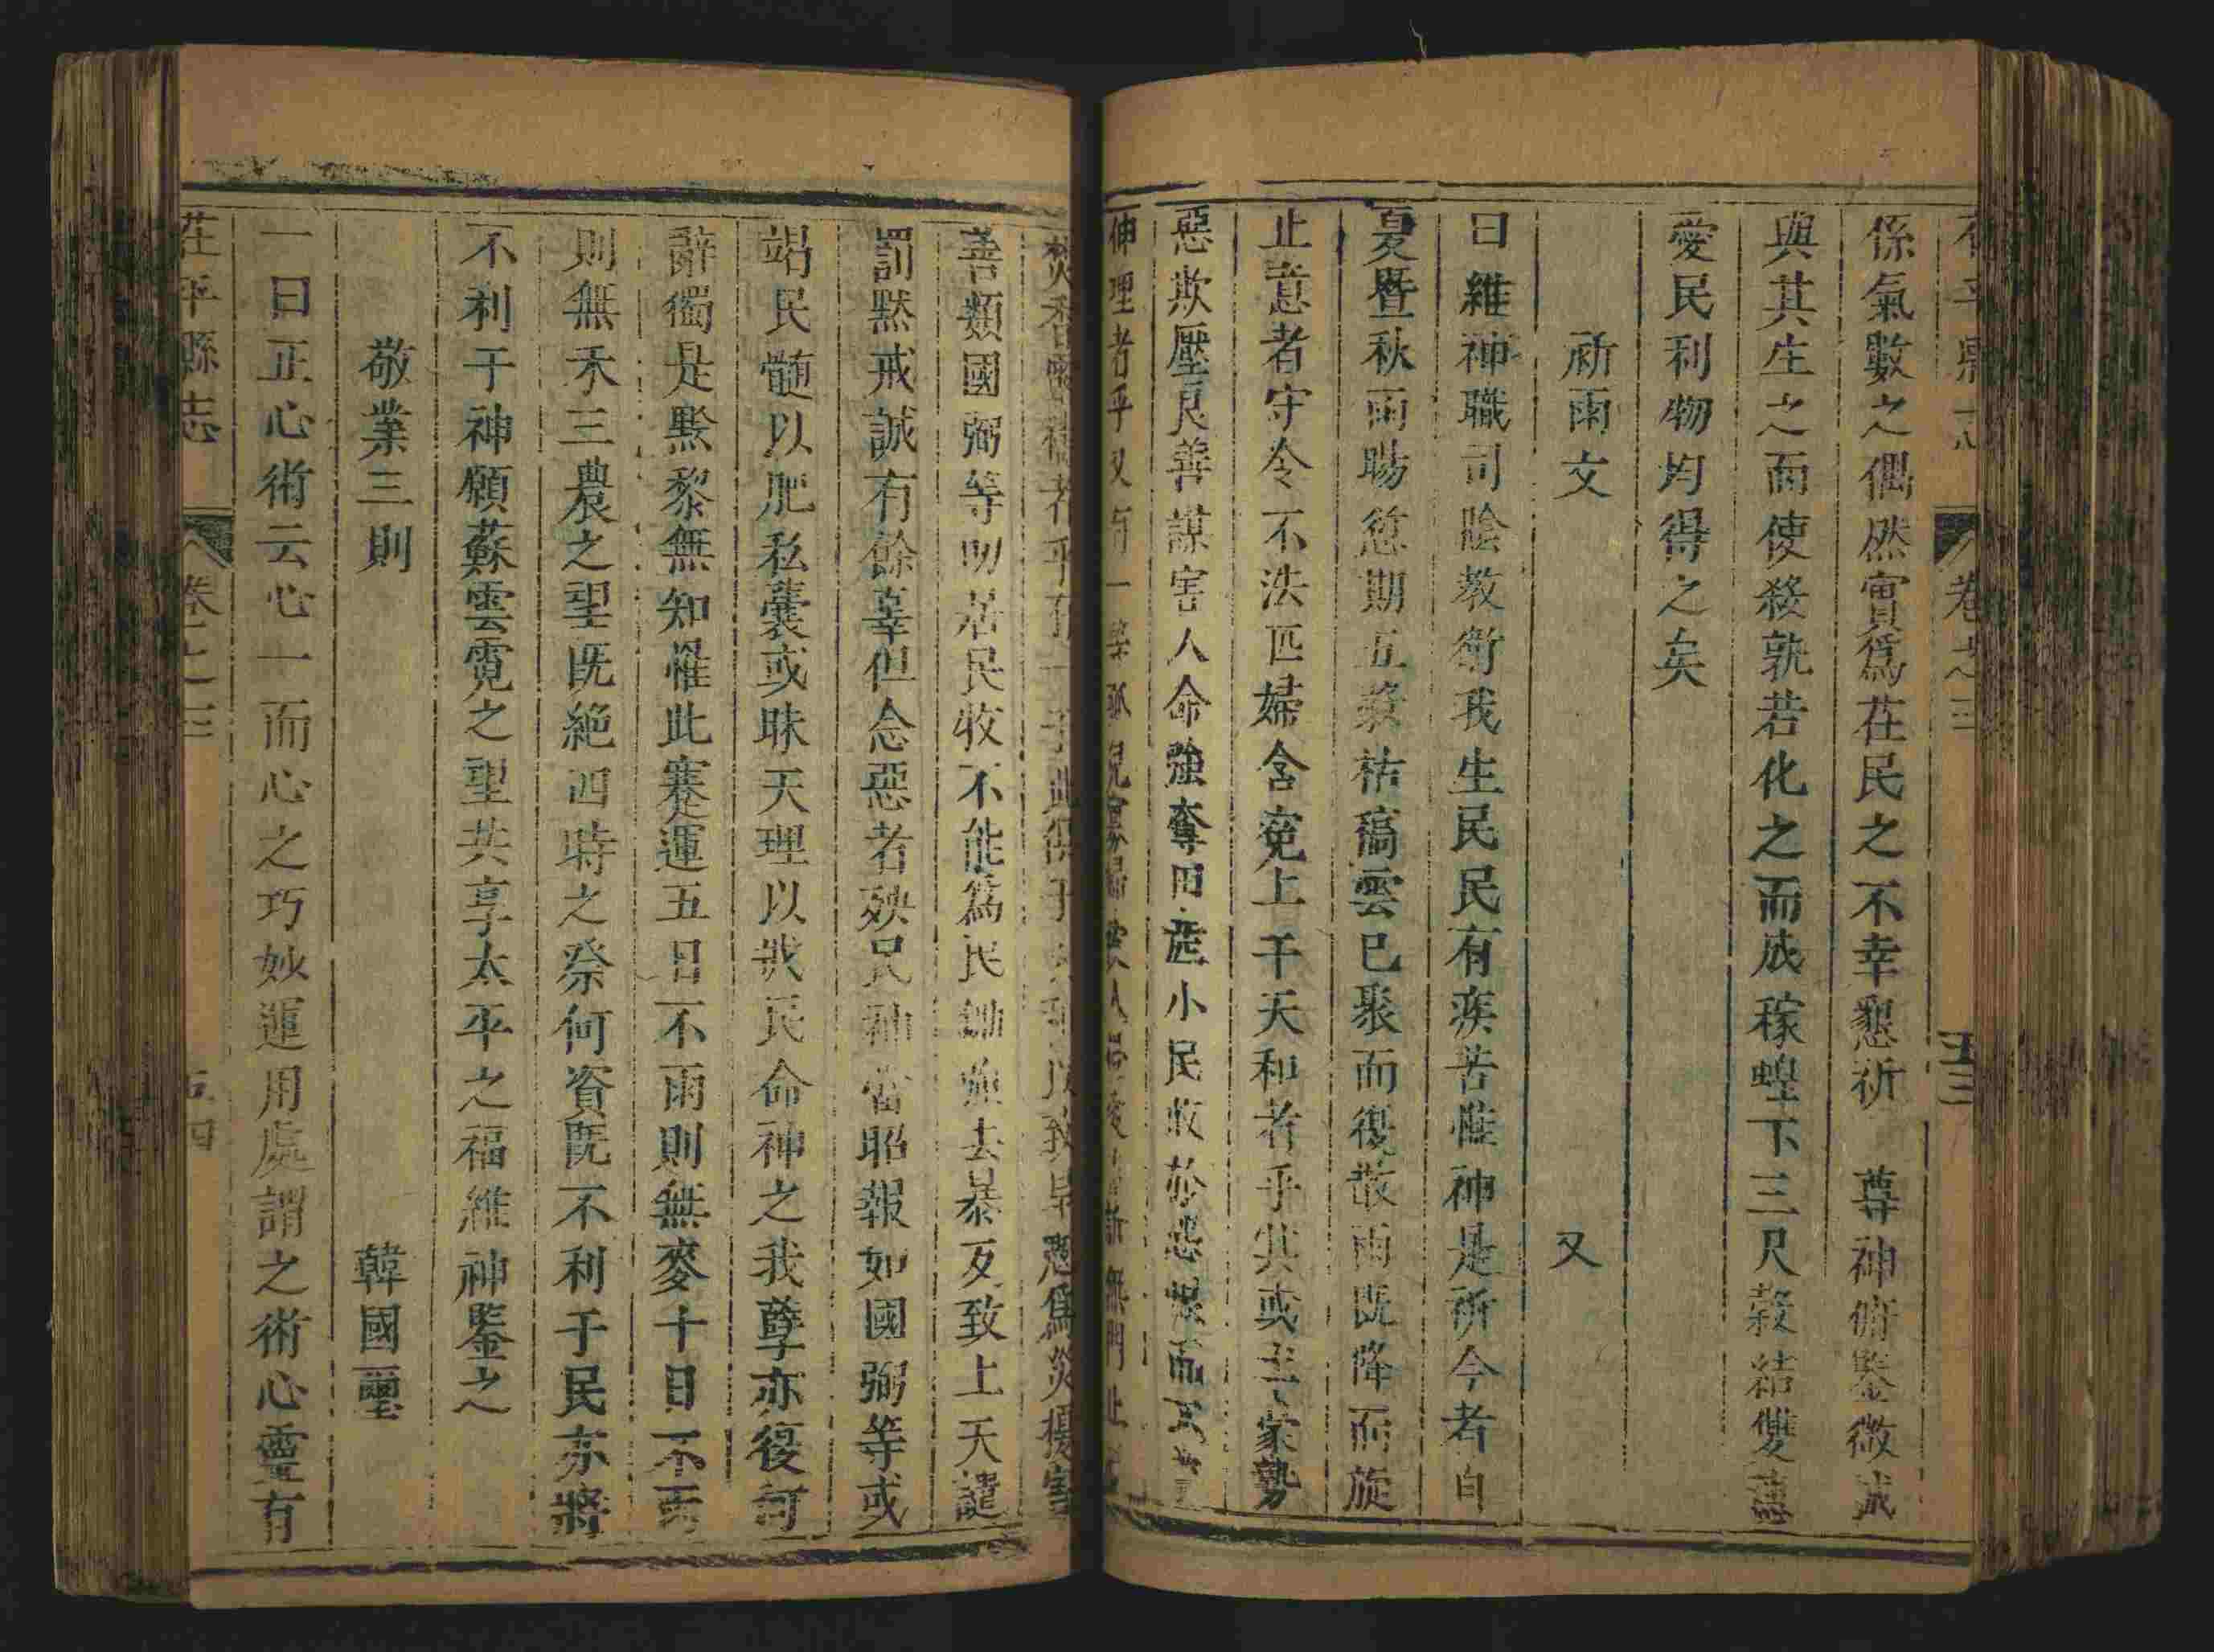 卷之三
係氣數之偶然實爲茌民之不幸懇祈 尊神俯鑒微誠
與其生之而使殺孰若化之而成稼蝗下三尺穀結雙
愛民利物均得之矣
祈雨文 又
曰維神職司陰教衛我生民民有疾苦惟神是所今者自
夏暨秋雨暘愆期五穀枯稿雲已聚而復散雨既降而旋
止意者守令不法匹婦含寃上干天和者乎其或土豪勢
惡欺壓良善謀害人命強奪田產小民
伸理者乎又有一等 無
善類國弼等叨居民牧不能爲民鋤強去暴反致上天譴
罰默戒誠有餘辜但念惡者殃民神當昭報如國弼等或
竭民髓以肥私囊或昧天理以戕民命神之我孽亦復何
辭獨是黔黎無知罹此蹇運五日不雨則無麥十日不雨
則無禾三農之望既絕四時之祭何資既不利于民亦將
不利于神願蘇雲霓之望共享太平之福維神鑒之
敬業三則 韓國璽
一曰正心術云心一而心之巧妙運用處謂之術心靈有
茌平縣志 卷之三